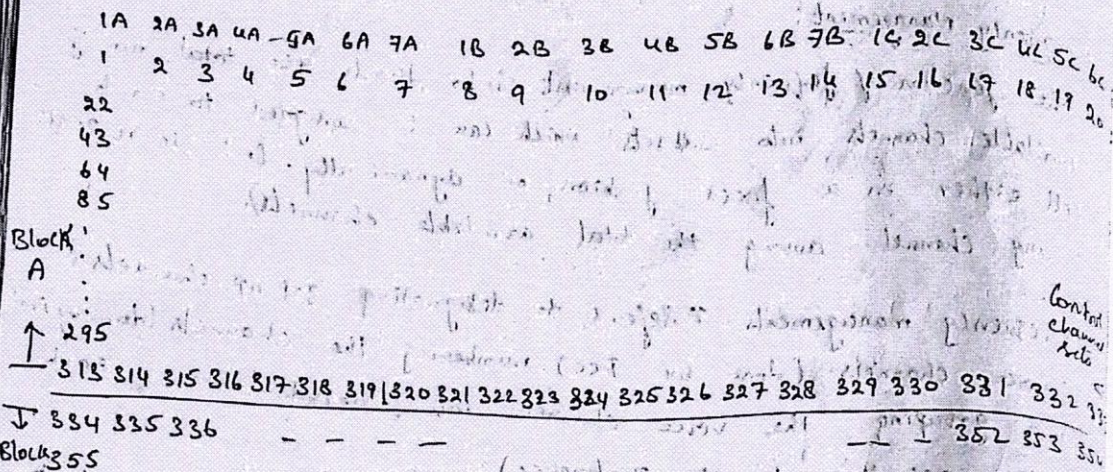 1A 2A 3A 4A - 5A 6A 7A 1B 2B 3B 4B 5B 6B 7B 1C 2C 3C 4C 5C 6C
1 2 3 4 5 6 7 8 9 10 11 12 13 14 15 16 17 18 19 20
22
43
64
85
Block
A
295
Control
channel
sets
313 314 315 316 317 318 319 320 321 322 323 324 325 326 327 328 329 330 331 332
334 335 336 - - - - 352 353 354
Block 355